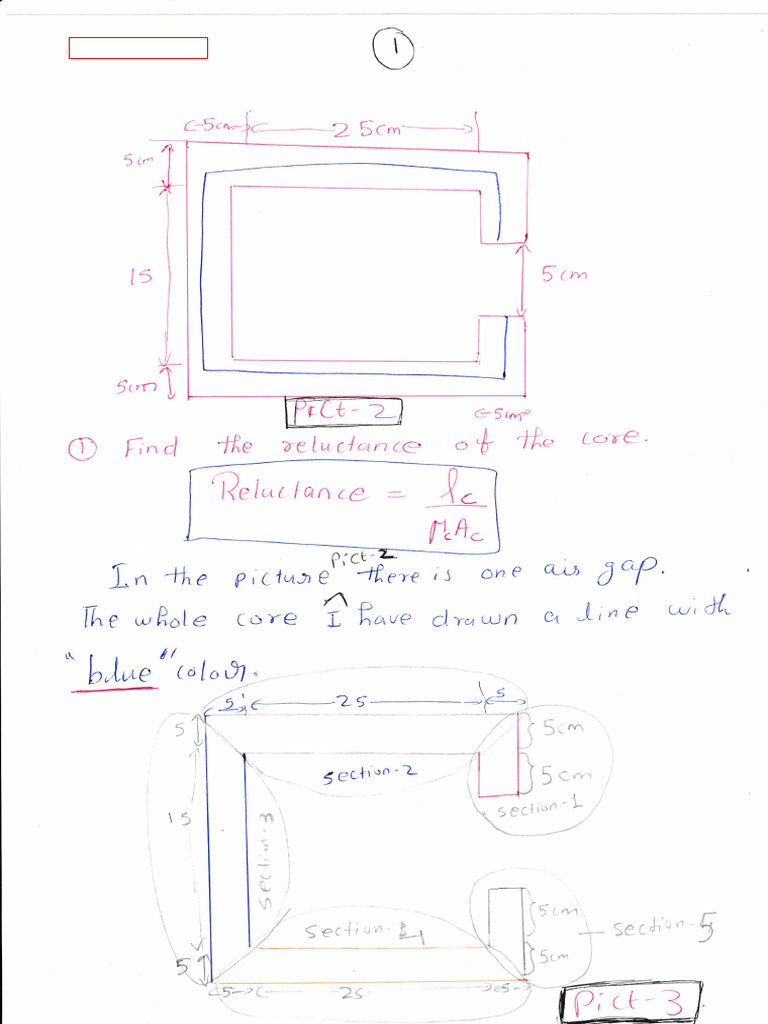 1
5cm 25cm
5cm
15
5cm
5cm
Pict-2
5cm
① Find the reluctance of the core.
Reluctance = lc / μcAc
In the picture Pict-2 there is one air gap.
The whole core I have drawn a line with
"blue" colour.
5 25 5
5
5cm
section-2
5cm
section-1
15
section-3
section-4
5cm
section-5
5cm
5
5 25 5
Pict-3